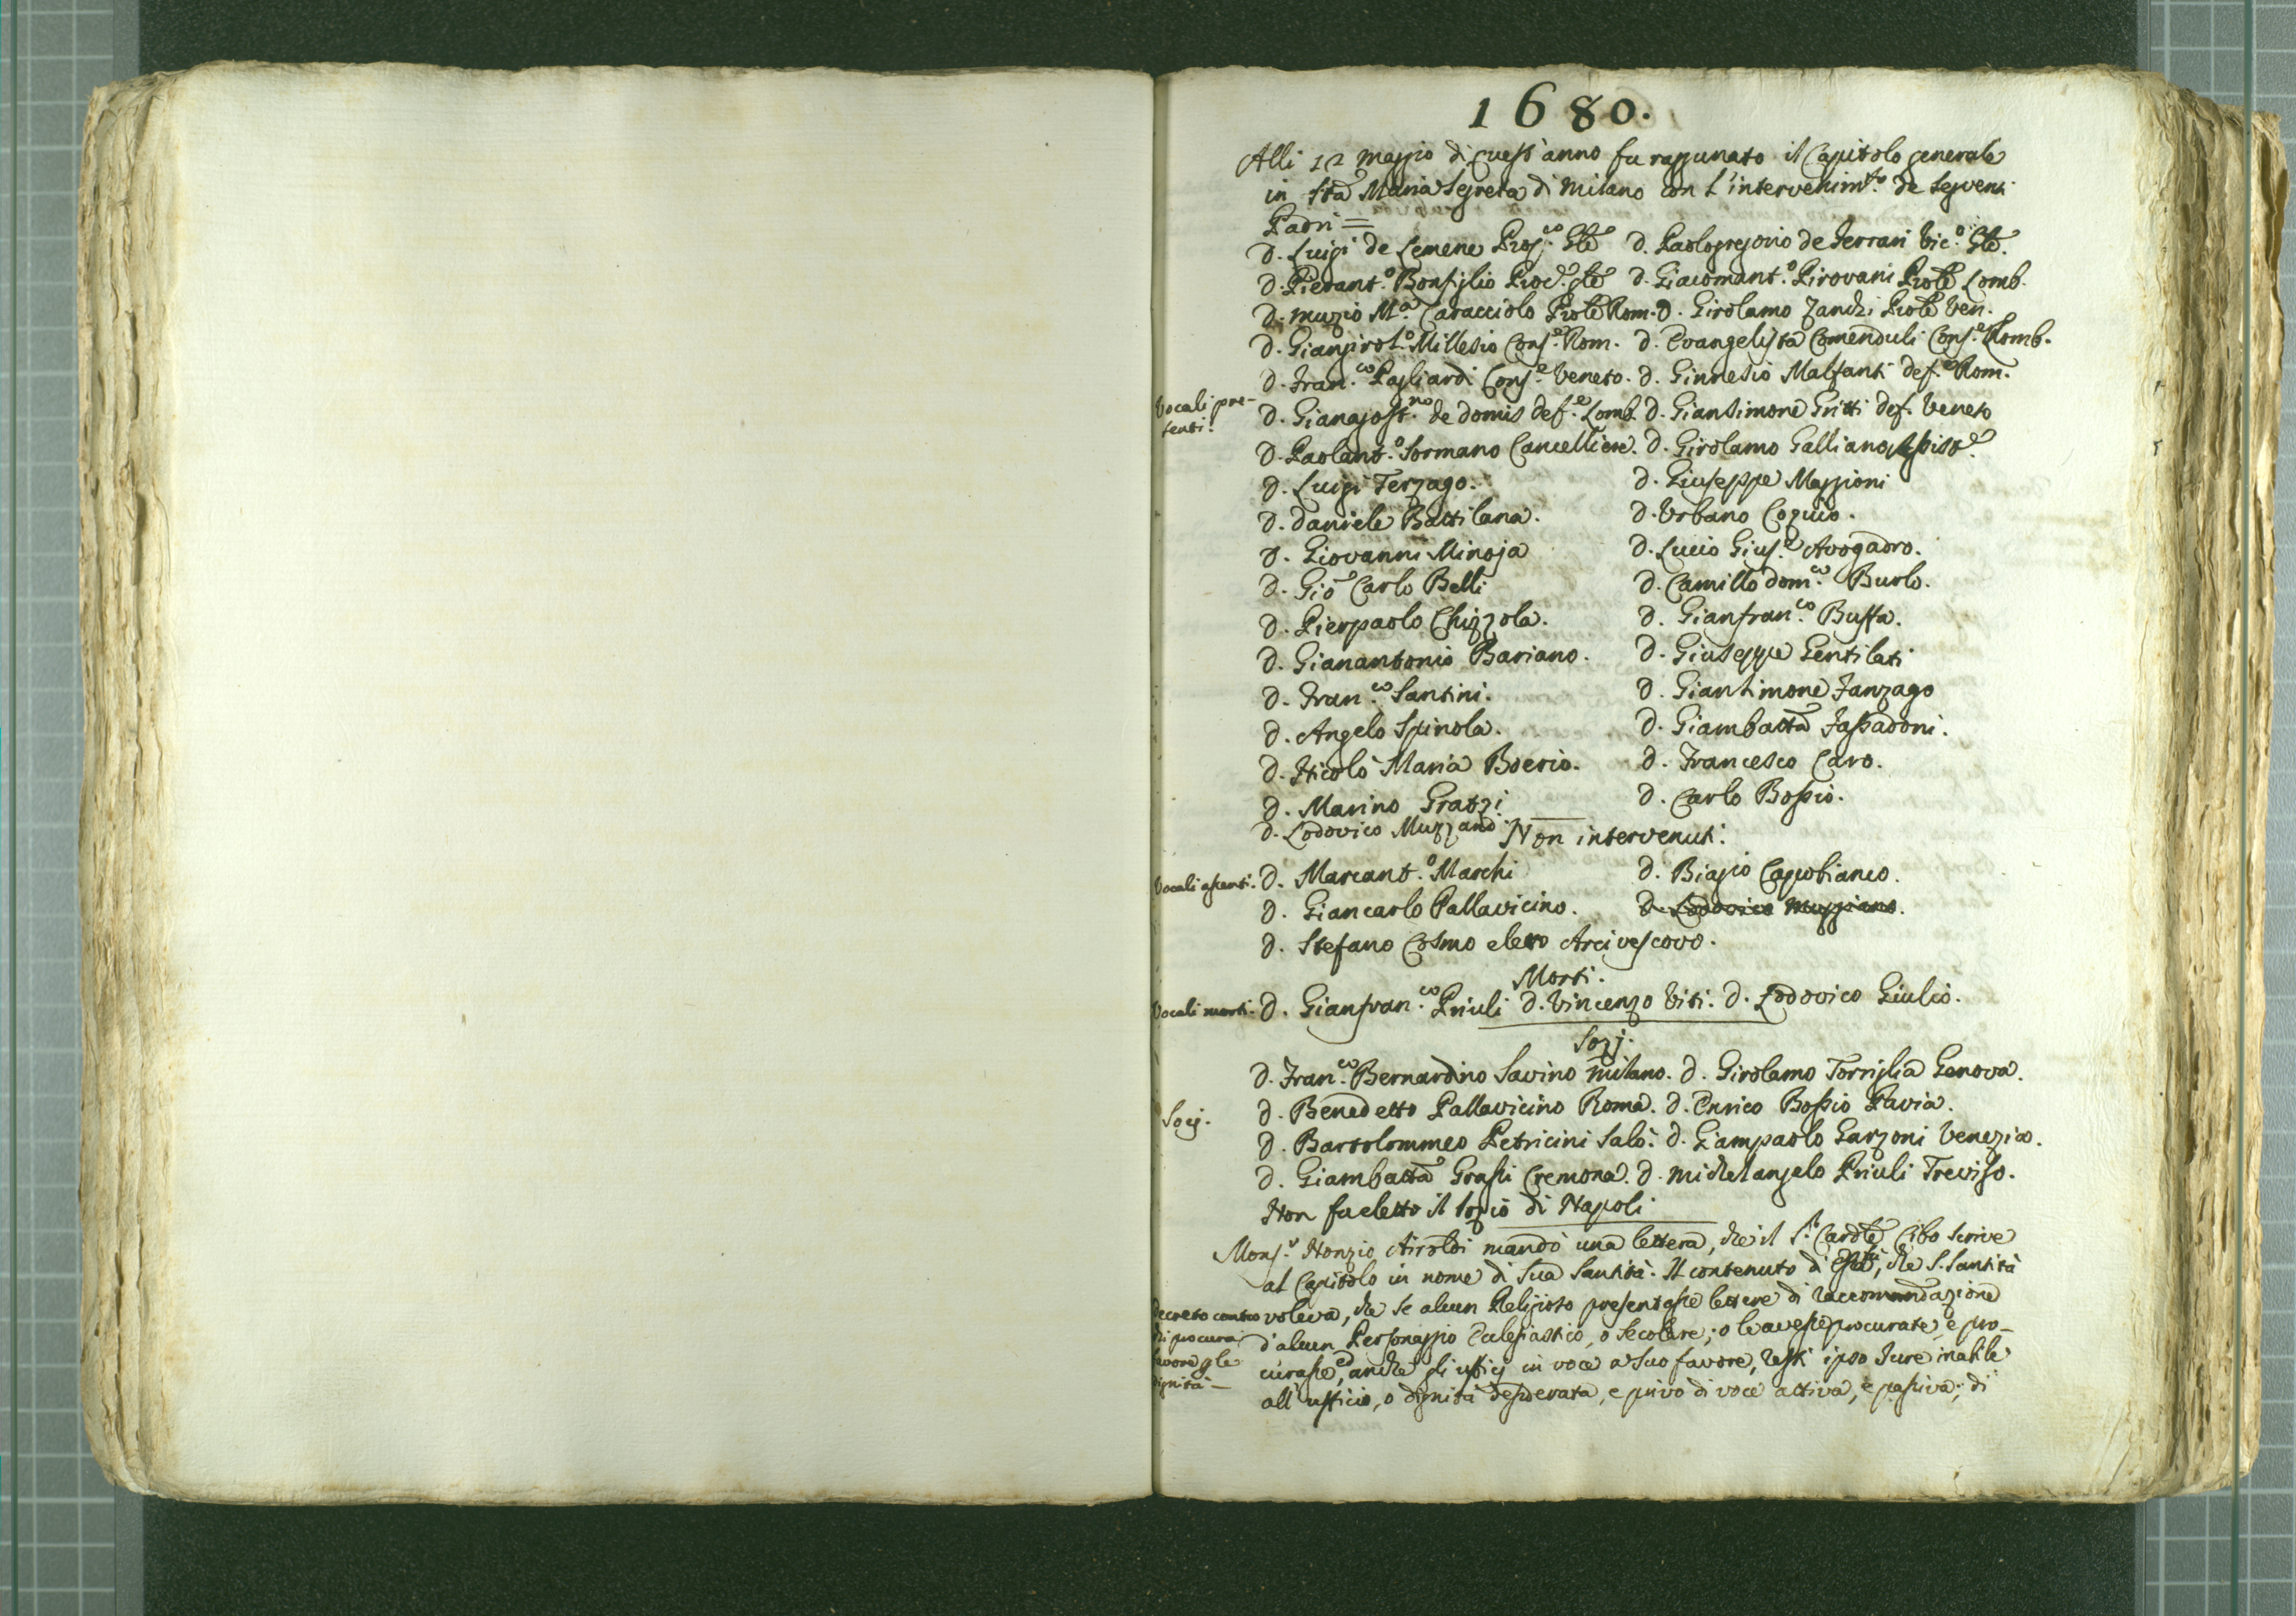 1680.
Alli 12 maggio di quest'anno fu raggunato il Capitolo generale
in Sta Maria Segreta di Milano con l'intervenim.to de seguenti
Padri =
D. Luigi de Lemene Prop.co Gle D. Paologregorio de Ferrari Vic.o Gle.
D. Pierant.o Bonfiglio Proc.e Gle D. Giacomant.o Pirovani Prole Lomb.
D. Muzio M.a Caracciolo Prole Rom. D. Girolamo Zanchi Prole Ven.
D. Giangirol.o Millesio Cons.e Rom. D. Evangelista Comenduli Cons.e Lomb.
D. Fran.co Pagliardi Cons.e Veneto. D. Ginnesio Malfanti def.e Rom.
Vocali pre-
senti.
D. Gianagost.no de Domis def.e Lomb. D. Giansimone Gritti def. Veneto
D. Paolant.o Sormano Cancelliere. D. Girolamo Galliano
D. Luigi Terzago. D. Giuseppe Maggioni
D. Daniele Battilana. D. Urbano Coquio.
D. Giovanni Minoja D. Lucio Gius.e Avogadro.
D. Gio Carlo Belli D. Camillo Dom.co Burlo.
D. Pierpaolo Chizzola. D. Gianfran.co Buffa.
D. Gianantonio Bariano. D. Giuseppe Gentilati
D. Fran.co Santini. D. Giansimone Fanzago
D. Angelo Spinola. D. Giambatta Fassadoni.
D. Nicolò Maria Boerio. D. Francesco Caro.
D. Marino Gratzi D. Carlo Bossio.
D. Lodovico Muzzano
Non intervenuti.
Vocali assenti. D. Marcant.o Marchi D. Biagio Capobianco.
D. Giancarlo Pallavicino. D. Lodovico Muzziano.
D. Stefano Cosmo eletto Arcivescovo.
Morti.
Vocali morti. D. Gianfran.co Priuli D. Vincenzo Viti. D. Lodovico Giulio.
Sozj.
D. Fran.co Bernardino Savino Milano. D. Girolamo Torriglia Genova.
Socj. D. Benedetto Pallavicino Roma. D. Enrico Bossio Pavia.
D. Bartolommeo Petricini Salò. D. Giampaolo Garzoni Venezia.
D. Giambatta Grassi Cremona. D. Michelangelo Priuli Treviso.
Non fu eletto il sozio di Napoli
Mons.r Nonzio Airoldi mandò una lettera, che il S.r Cardle Cibo scrive
al Capitolo in nome di Sua Santità. Il contenuto di che S. Santità
Decreto contro
di procurar
favore p le
dignità —
voleva, che se alcun Religioso presentasse lettere di raccomandazione
d'alcun Personaggio Eclesiastico, o secolare; o le avesse procurate, e pro-
curasse, ed anche gli ufficj in voce a suo favore, resti ipso jure inabile
all'ufficio, o dignità desiderata, e privo di voce attiva, e passiva; di